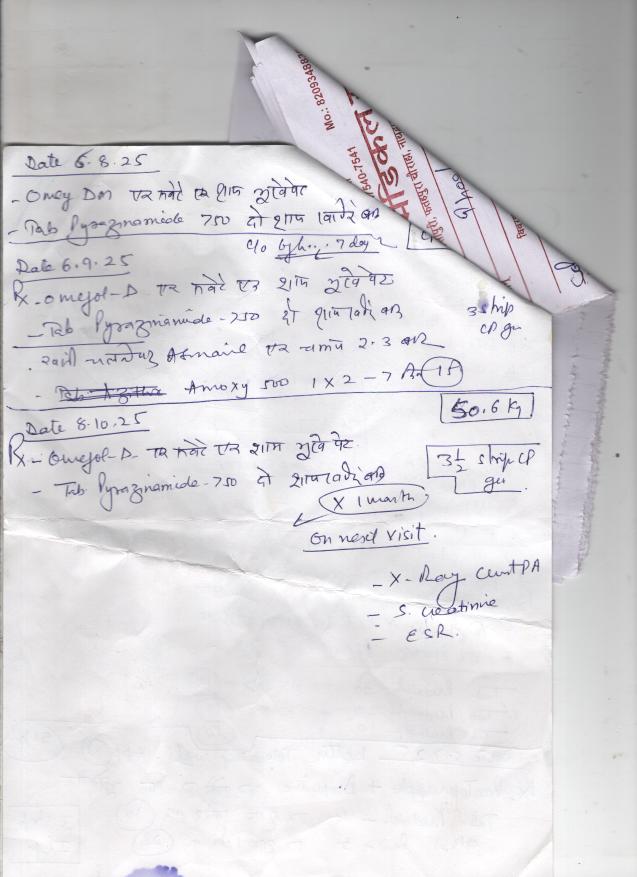 Mo.: 8209348871
7540-7541
Date 6.8.25
- Omey DM एक सवेरे एक शाम भूखे पेट
- Tab Pyrazinamide 750 दो शाम
c/o 7 day
Date 6.9.25
Rx. Omejol-D एक सवेरे एक शाम भूखे पेट
- Tab Pyrazinamide - 750 दो शाम
3 strip
CP
एक चम्मच 2.3 बार
- Amoxy 500 1 x 2 - 7 दिन 15
50.6 Kg
Date 8.10.25
Rx - Omejol-D - एक सवेरे एक शाम भूखे पेट
- Tab Pyrazinamide - 750 दो शाम
3 1/2 strip CP
x 1 month
on next visit.
- X-Ray Chest PA
- S. Creatinine
- ESR.